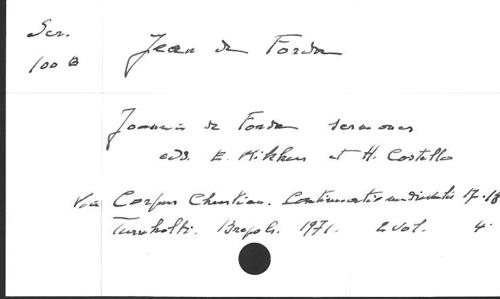 Scr.
100 B
Jean de Forda
Joannis de Forda sermones
edd. E. Mikkers et H. Costello
Voir Corpus Christian. Continuatio mediaevalis 17-18
Turnholti. Brepols. 1971. 2 vol. 4.